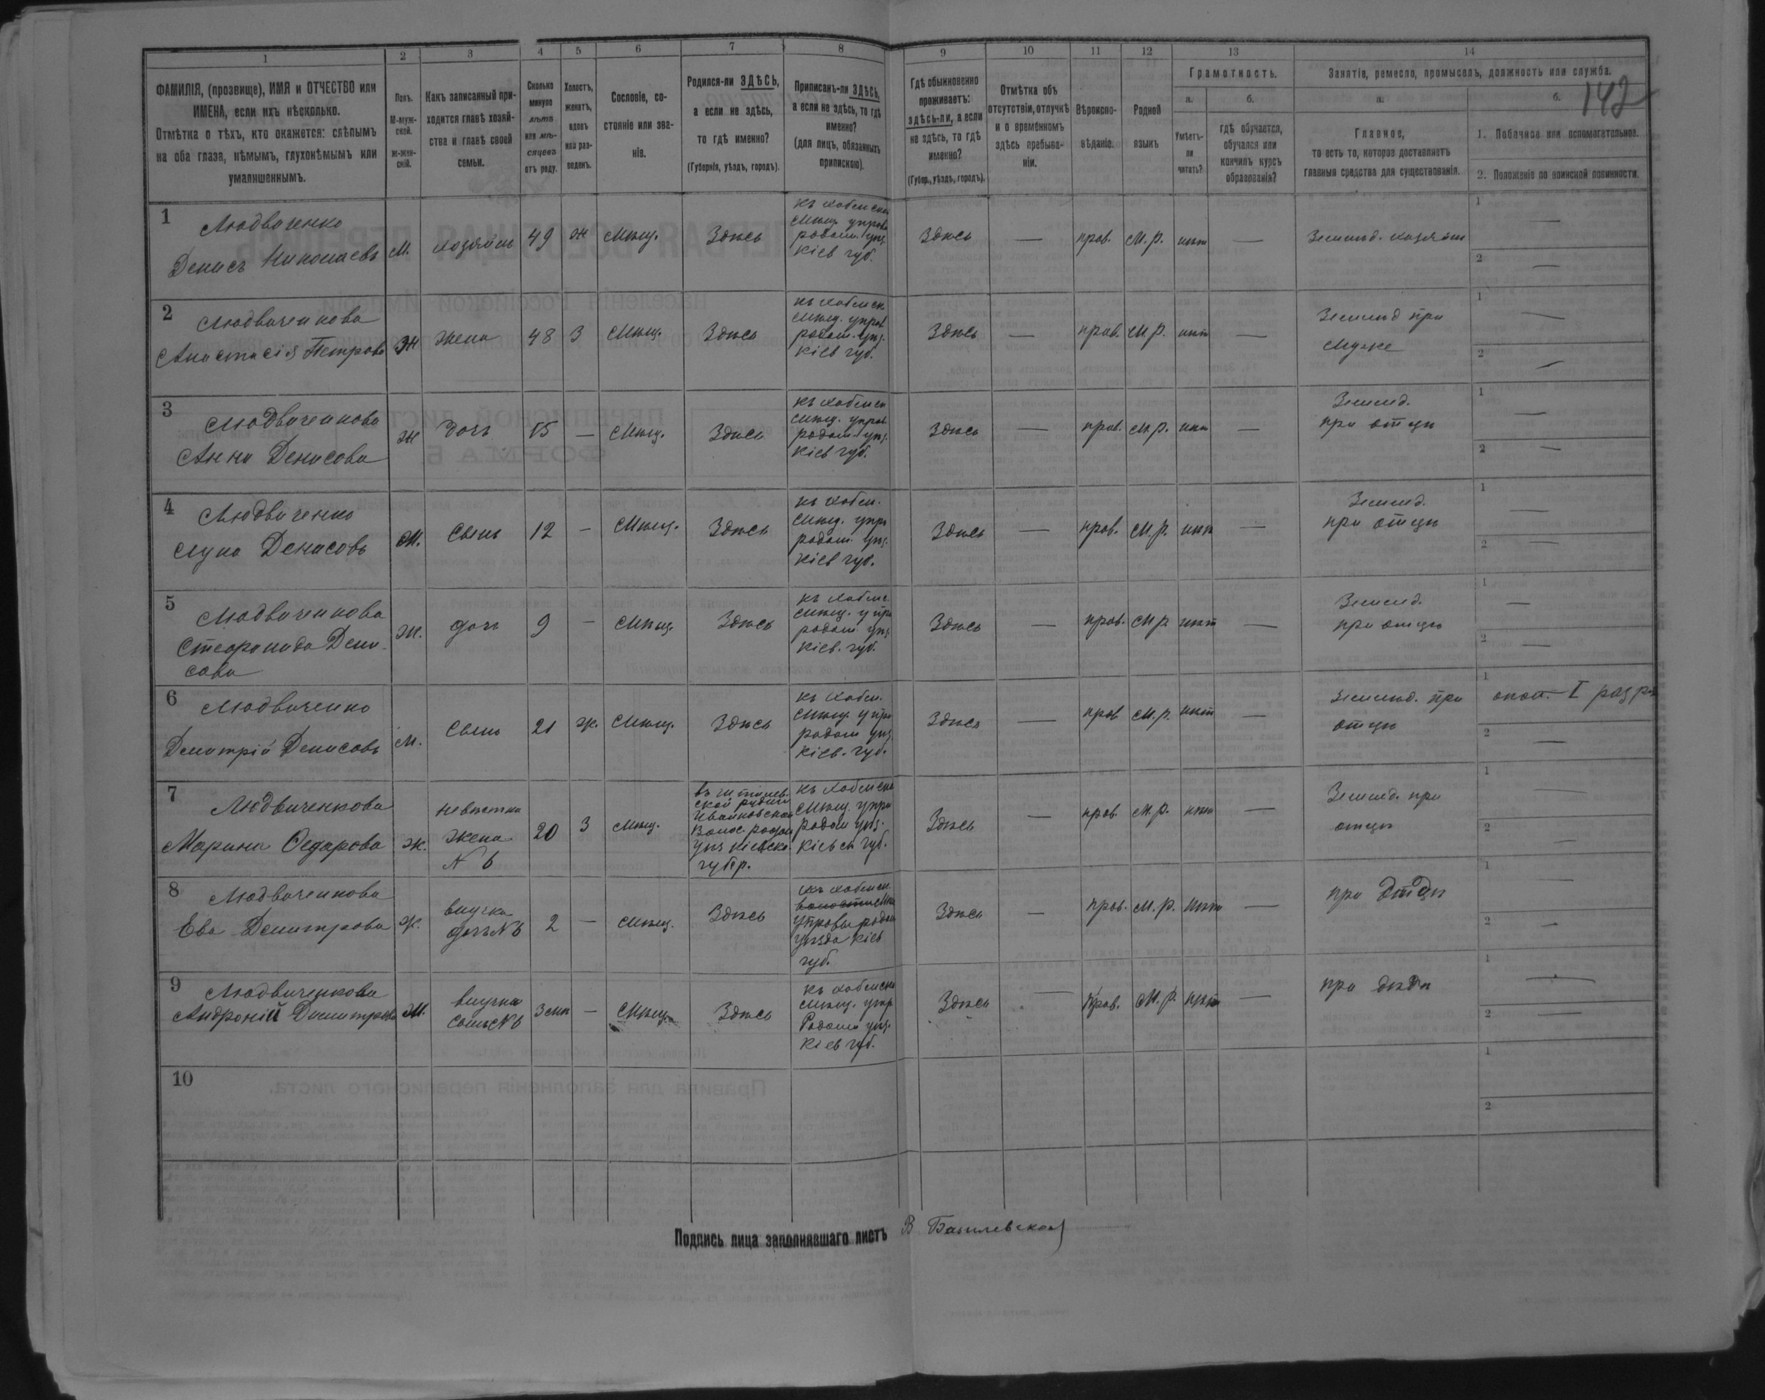 142
1 2 3 4 5 6 7 8 9 10 11 12 13 14
ФАМИЛІЯ, (прозвище), ИМЯ и ОТЧЕСТВО или
ИМЕНА, если ихъ нѣсколько.
Отмѣтка о тѣхъ, кто окажется: слѣпымъ
на оба глаза, нѣмымъ, глухонѣмымъ или
умалишеннымъ.
Полъ.
М-муж-
ской.
Ж-жен-
скій.
Какъ записанный при-
ходится главѣ хозяй-
ства и главѣ своей
семьи.
Сколько
минуло
лѣтъ
или мѣ-
сяцевъ
отъ роду.
Холостъ,
женатъ,
вдовъ
или раз-
веденъ.
Сословіе, со-
стояніе или зва-
ніе.
Родился-ли ЗДѢСЬ,
а если не здѣсь,
то гдѣ именно?
(Губернія, уѣздъ, городъ).
Приписанъ-ли ЗДѢСЬ,
а если не здѣсь, то гдѣ
именно?
(для лицъ, обязанныхъ
припискою).
Гдѣ обыкновенно
проживаетъ:
здѣсь-ли, а если
не здѣсь, то гдѣ
именно?
(Губер., уѣздъ, городъ).
Отмѣтка объ
отсутствіи, отлучкѣ
и о временномъ
здѣсь пребыва-
ніи.
Вѣроиспо-
вѣданіе.
Родной
языкъ
Грамотность.
а.
Умѣетъ-
ли
читать?
б.
гдѣ обучается,
обучался или
кончилъ курсъ
образованія?
Занятіе, ремесло, промыселъ, должность или служба.
а.
Главное,
то есть то, которое доставляетъ
главныя средства для существованія.
б.
1. Побочное или вспомогательное.
2. Положеніе по воинской повинности.
1 Людвиченко
Денисъ Николаевъ М. хозяинъ 49 ж мѣщ. Здѣсь
мѣщ. упра
радом. уѣз.
Кіев губ.
Здѣсь — прав. М.р. нѣт — Земледѣ. хозяинъ
1 —
2 —
2 Людвиченкова
Анастасія Петрова Ж жена 48 З мѣщ. Здѣсь
мѣщ. упра
радом. уѣз.
Кіев губ.
Здѣсь — прав. М.р. нѣт — Земледѣ при
мужѣ
1 —
2 —
3 Людвиченкова
Анна Денисова ж дочь 15 — мѣщ. Здѣсь
мѣщ. упра
радом. уѣз.
Кіев губ.
Здѣсь — прав. М.р. нѣт — Землед.
при отцѣ
1 —
2 —
4 Людвиченко
Лука Денисовъ М. сынъ 12 — мѣщ. Здѣсь
мѣщ. упра
радом. уѣз.
Кіев губ.
Здѣсь — прав. М.р. нѣт — Землед.
при отцѣ
1 —
2 —
5 Людвиченкова
Стефанида Дени-
сова ж. дочь 9 — мѣщ. Здѣсь
мѣщ. упра
радом. уѣз.
Кіев. губ.
Здѣсь — прав. М.р нѣт — Землед.
при отцѣ
1 —
2 —
6 Людвиченко
Димитрій Денисовъ м. сынъ 21 ж. мѣщ. Здѣсь
мѣщ. упра
радом уѣз.
Кіев. губ.
Здѣсь — прав М.р. нѣт — Земледѣ. при
отцѣ
1 I разр
2 —
7 Людвиченкова
Марина Федорова ж. невѣстка
жена
N 6
20 З мѣщ.
Ивановской
Волос радом
уѣз кіевско
губер.
мѣщ. упра
радом уѣз.
Кіевск губ.
Здѣсь — прав М.р. нѣт — Землед. при
отцѣ
1 —
2 —
8 Людвиченкова
Ева Димитрова ж. внучка
дочь N 6 2 — мѣщ. Здѣсь
управы радом
уѣзда Кіев
губ.
Здѣсь — прав. М.р. нѣт — при дѣдѣ
1 —
2 —
9 Людвиченкова
Андроній Димитровъ М. внучка
сынъ N 6 3 мѣс — мѣщ. Здѣсь
мѣщ. упр
Радом уѣз.
Кіев губ.
Здѣсь — прав. М.р нѣт — при дѣдѣ
1 —
2 —
10
1
2
Подпись лица заполнявшаго листъ В. Базилевской